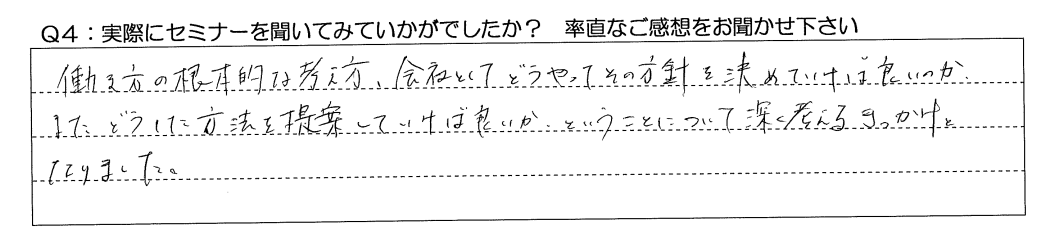 Q4：実際にセミナーを聞いてみていかがでしたか？　率直なご感想をお聞かせ下さい
働き方の根本的な考え方、会社としてどうやってその方針を決めていけば良いのか、
またどうした方法を提案していけば良いか、ということについて深く考えるきっかけと
なりました。